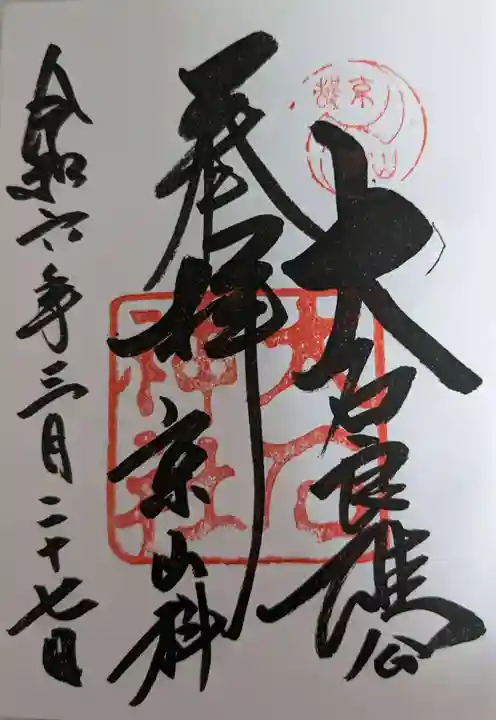 大石良雄公
奉拝
京山科
令和六年三月二十七日
大石
神社